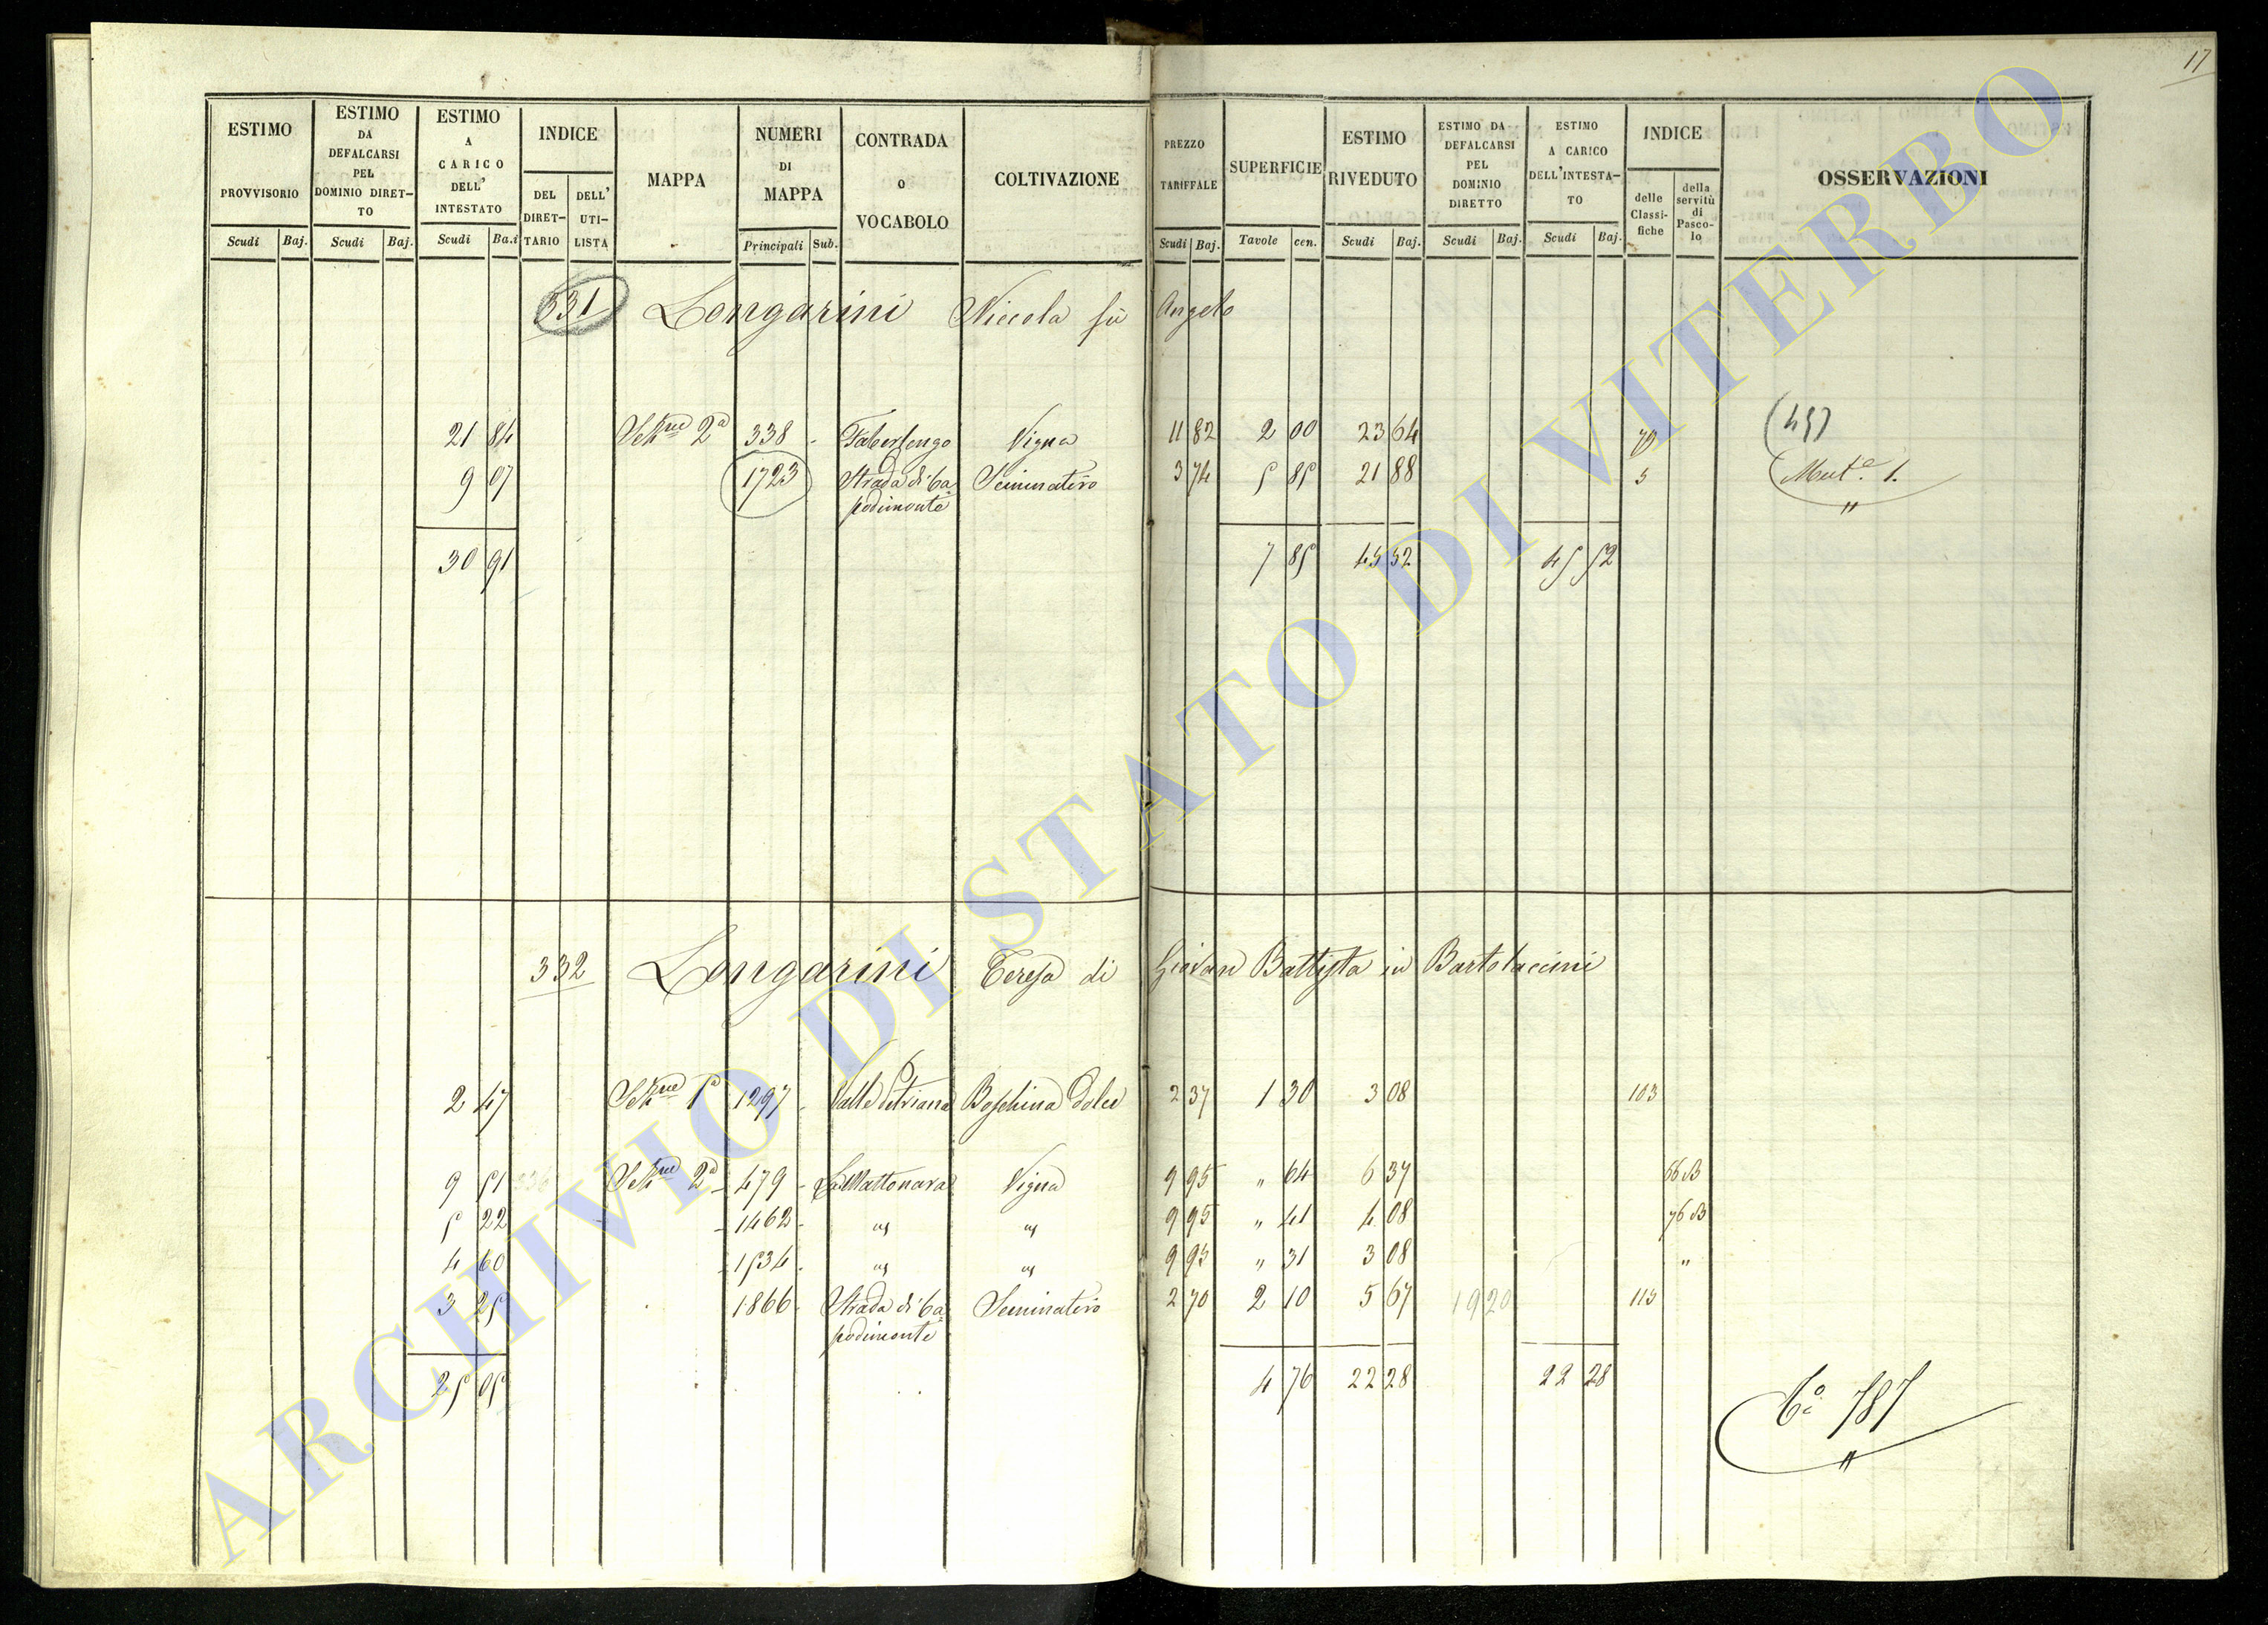 17
ESTIMO PROVVISORIO Scudi Baj.
ESTIMO DA DEFALCARSI PEL DOMINIO DIRETTO Scudi Baj.
ESTIMO A CARICO DELL' INTESTATO Scudi Ba.i
INDICE DEL DIRETTARIO DELL' UTILISTA
MAPPA
NUMERI DI MAPPA Principali Sub.
CONTRADA O VOCABOLO
COLTIVAZIONE
PREZZO TARIFFALE Scudi Baj.
SUPERFICIE Tavole cen.
ESTIMO RIVEDUTO Scudi Baj.
ESTIMO DA DEFALCARSI PEL DOMINIO DIRETTO Scudi Baj.
ESTIMO A CARICO DELL'INTESTATO Scudi Baj.
INDICE delle Classifiche della servitù di Pascolo
OSSERVAZIONI
331 Longarini Niccola fù Angelo
21 84 Sez.ne 2a 338 - Faberlongo Vigna 11 82 2 00 23 64 70
9 07 1723 Strada di Ca= Seminativo 3 74 5 85 21 88 5 Mut.e 1.
podimonte "
30 91 7 85 45 52 45 52
332 Longarini Teresa di Giovan Battista in Bartolaccini
2 47 Sez.ne 1a 1297 - Valle Petriana Boschina dolce 2 37 1 30 3 08 103
9 51 336 Sez.ne 2a - 479 - La Mattonara Vigna 9 95 " 64 6 37 66 B
5 22 - 1462 - " " 9 95 " 41 4 08 76 B
4 60 - 1534 - " " 9 95 " 31 3 08 "
3 25 1866 - Strada di Ca= Seminativo 2 70 2 10 5 67 1920 115
podimonte
25 05 4 76 22 28 22 28 C.o 787
"
ARCHIVIO DI STATO DI VITERBO